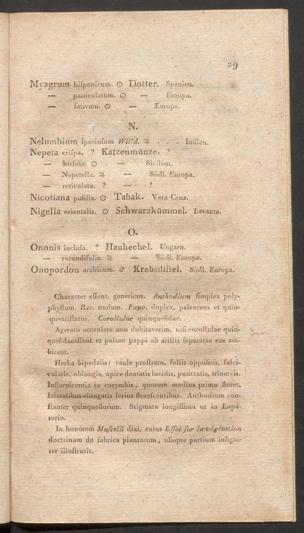 29
Myagrum hispanicum. ⊙ Dotter. Spanien.
— paniculatum. ⊙ — Europa.
— sativum. ⊙ — Europa.
N.
Nelumbium speciosum Willd. ♃ . . . Indien.
Nepeta crispa. ? Katzenmünze. —
— hirsuta. ⊙ — Sicilien.
— Nepetella. ♃ — Südl. Europa.
— reticulata. ? — ?
Nicotiana pusilla. ⊙ Tabak. Vera Crux.
Nigella orientalis. ⊙ Schwarzkümmel. Levante.
O.
Ononis inclusa. ? Hauhechel. Ungarn.
— rotundifolia. ♃ — Südl. Europa.
Onopordon arabicum. ♂ Krebsdistel. Südl. Europa.
Character essent. genericus. Anthodium simplex poly-
phyllum. Rec. nudum. Papp. duplex, paleaceus et quin-
quearistatus. Corollulae quinquefidae.
Agerato accensere non dubitaverim, nisi corollulae quin-
quefidae essent et paleae pappi ab aristis separatae eae ad-
hicent.
Herba bipedalis: caule prostrato, foliis oppositis, fasci-
cularis, oblongis, apice dentatis lucidis, punctatis, trinerviis.
Inflorescentia in corymbis, quorum medius primo floret,
lateralibus elongatis serius florescentibus. Anthodium con-
stanter quinqueflorum. Stigmata longissima ut in Eupa-
torio.
In honorem Mustelii dixi, cuius Essai sur la végétation
doctrinam de fabrica plantarum, usuque partium insigni-
ter illustravit.